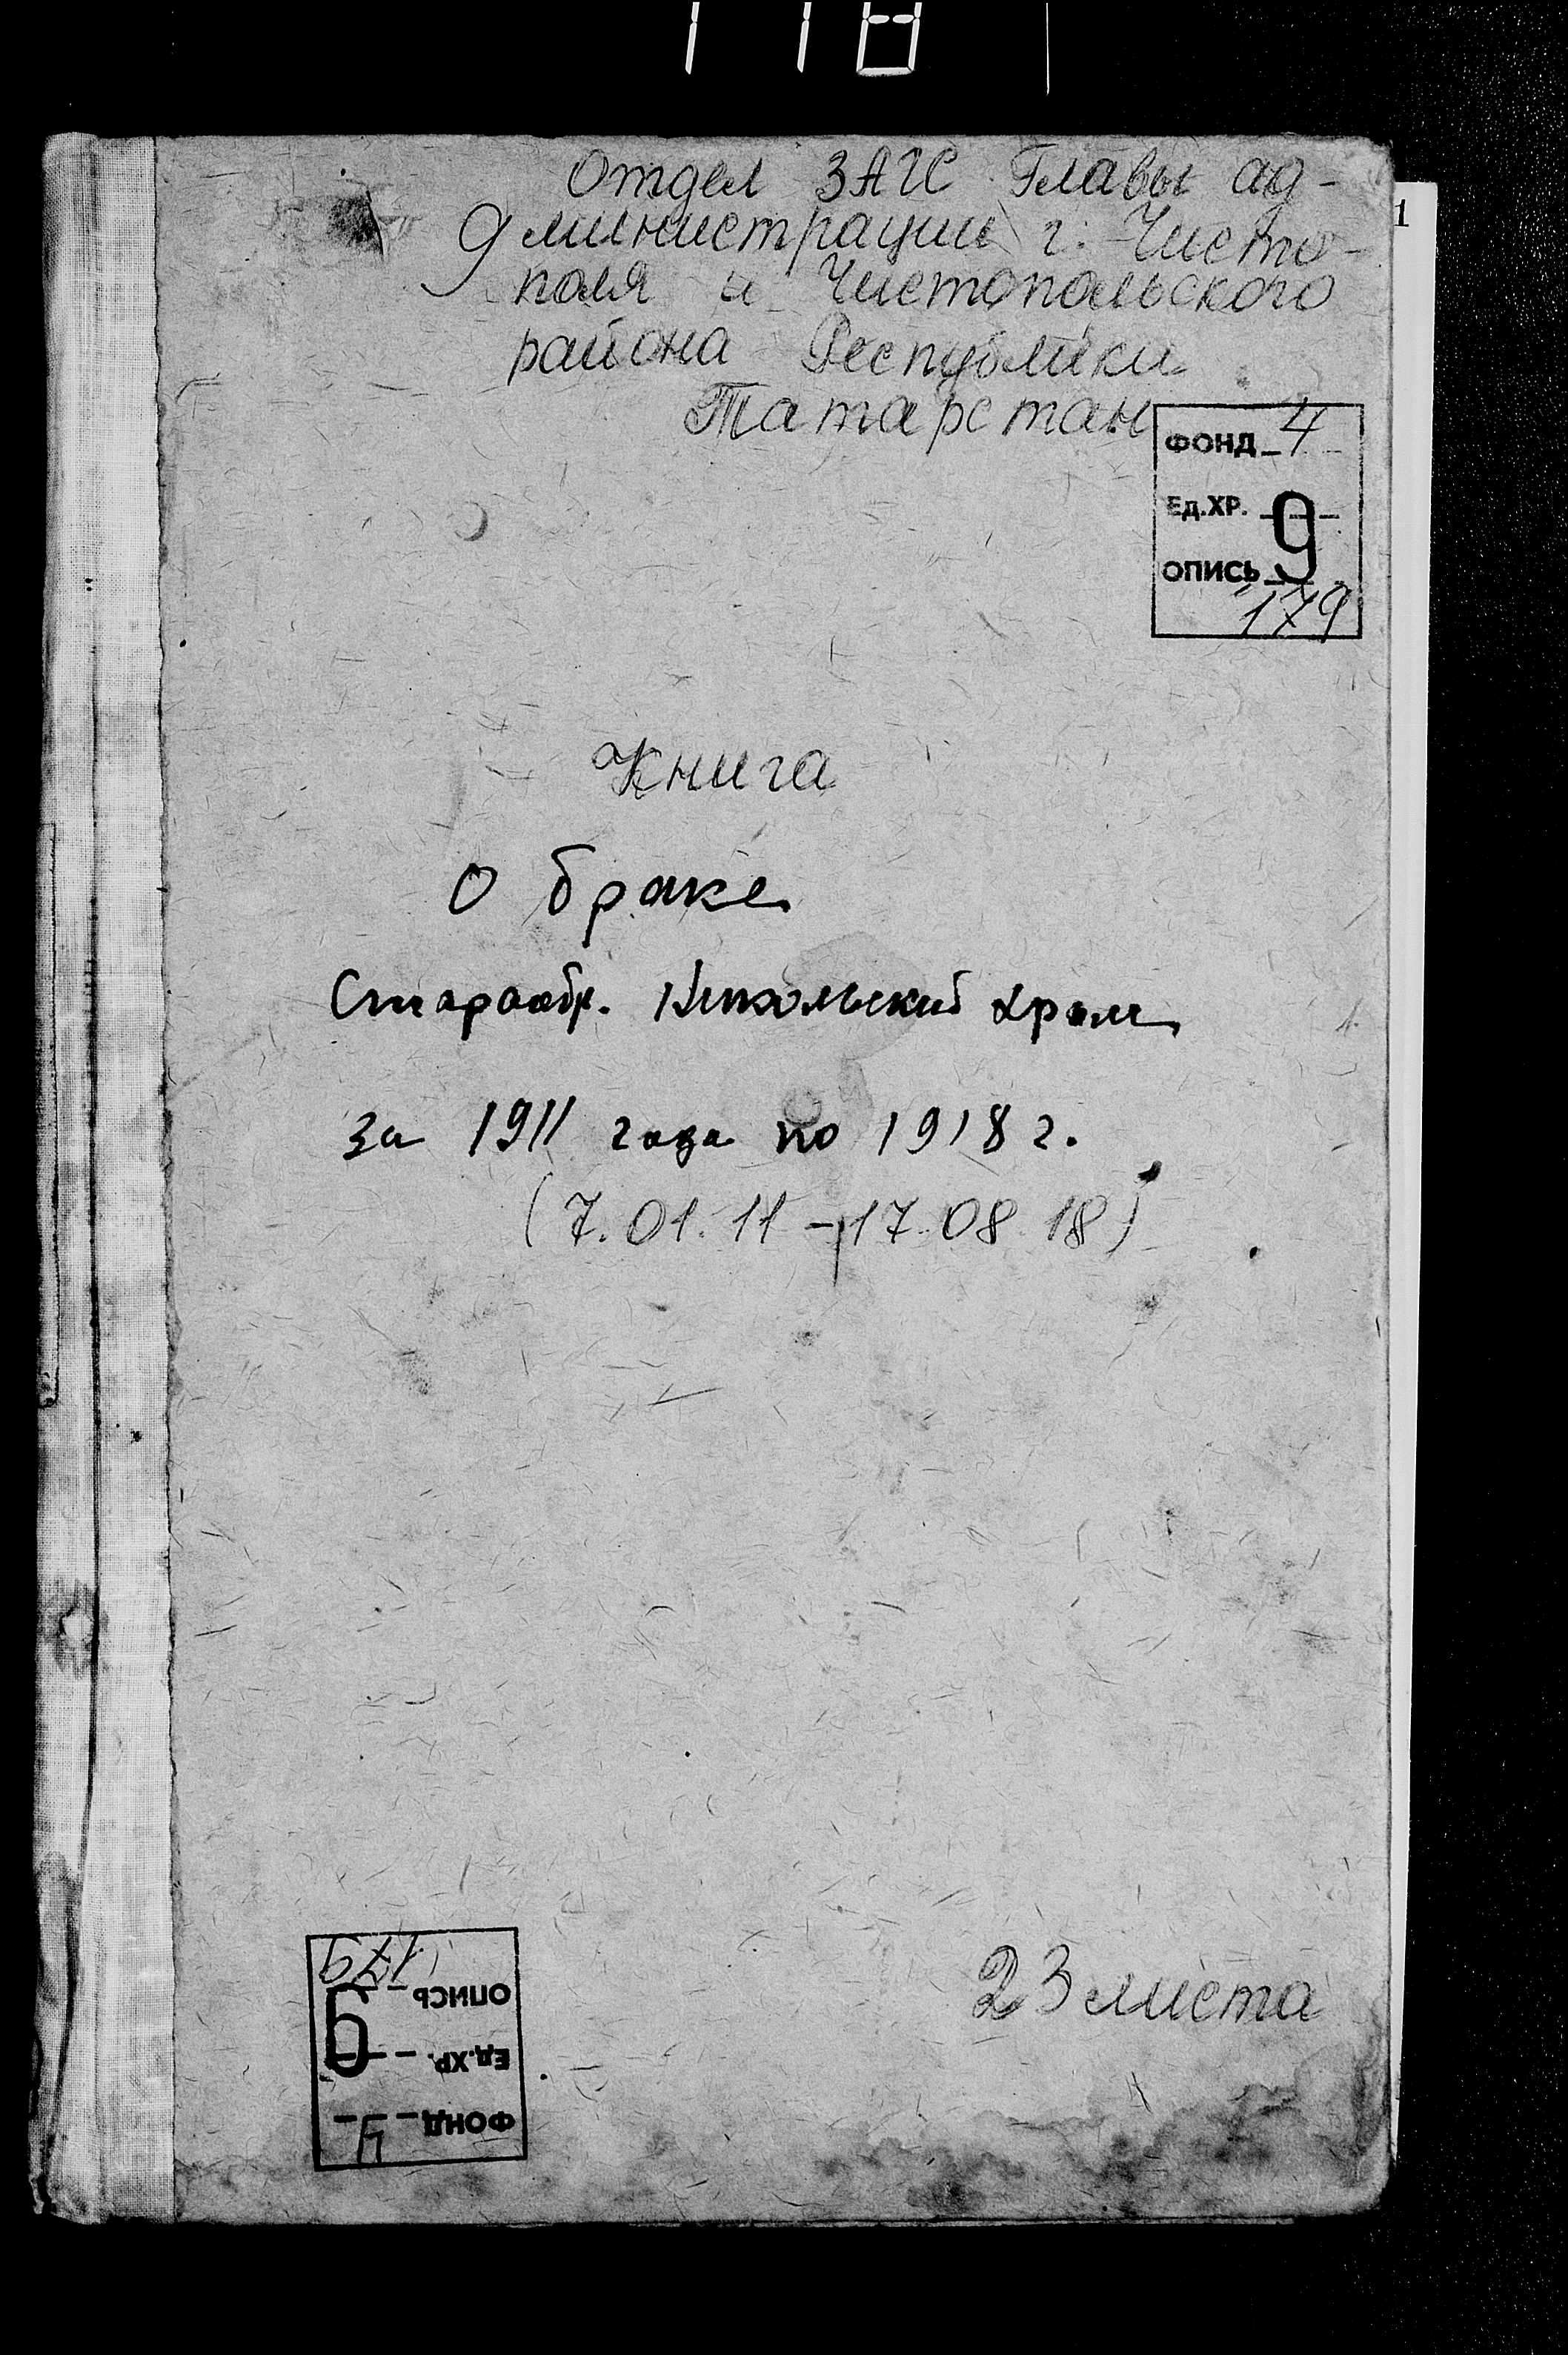 Отдел ЗАГС Главы ад-
министрации г. Чисто-
поля и Чистопольского
района Республики
Татарстан
ФОНД 4
ЕД.ХР. 9
ОПИСЬ 179
1
Книга
О браке
Старообр. Никольский храм
за 1911 года по 1918 г.
(7.01.11 - 17.08.18)
23 листа
179
ОПИСЬ
9
ЕД.ХР.
ФОНД 4